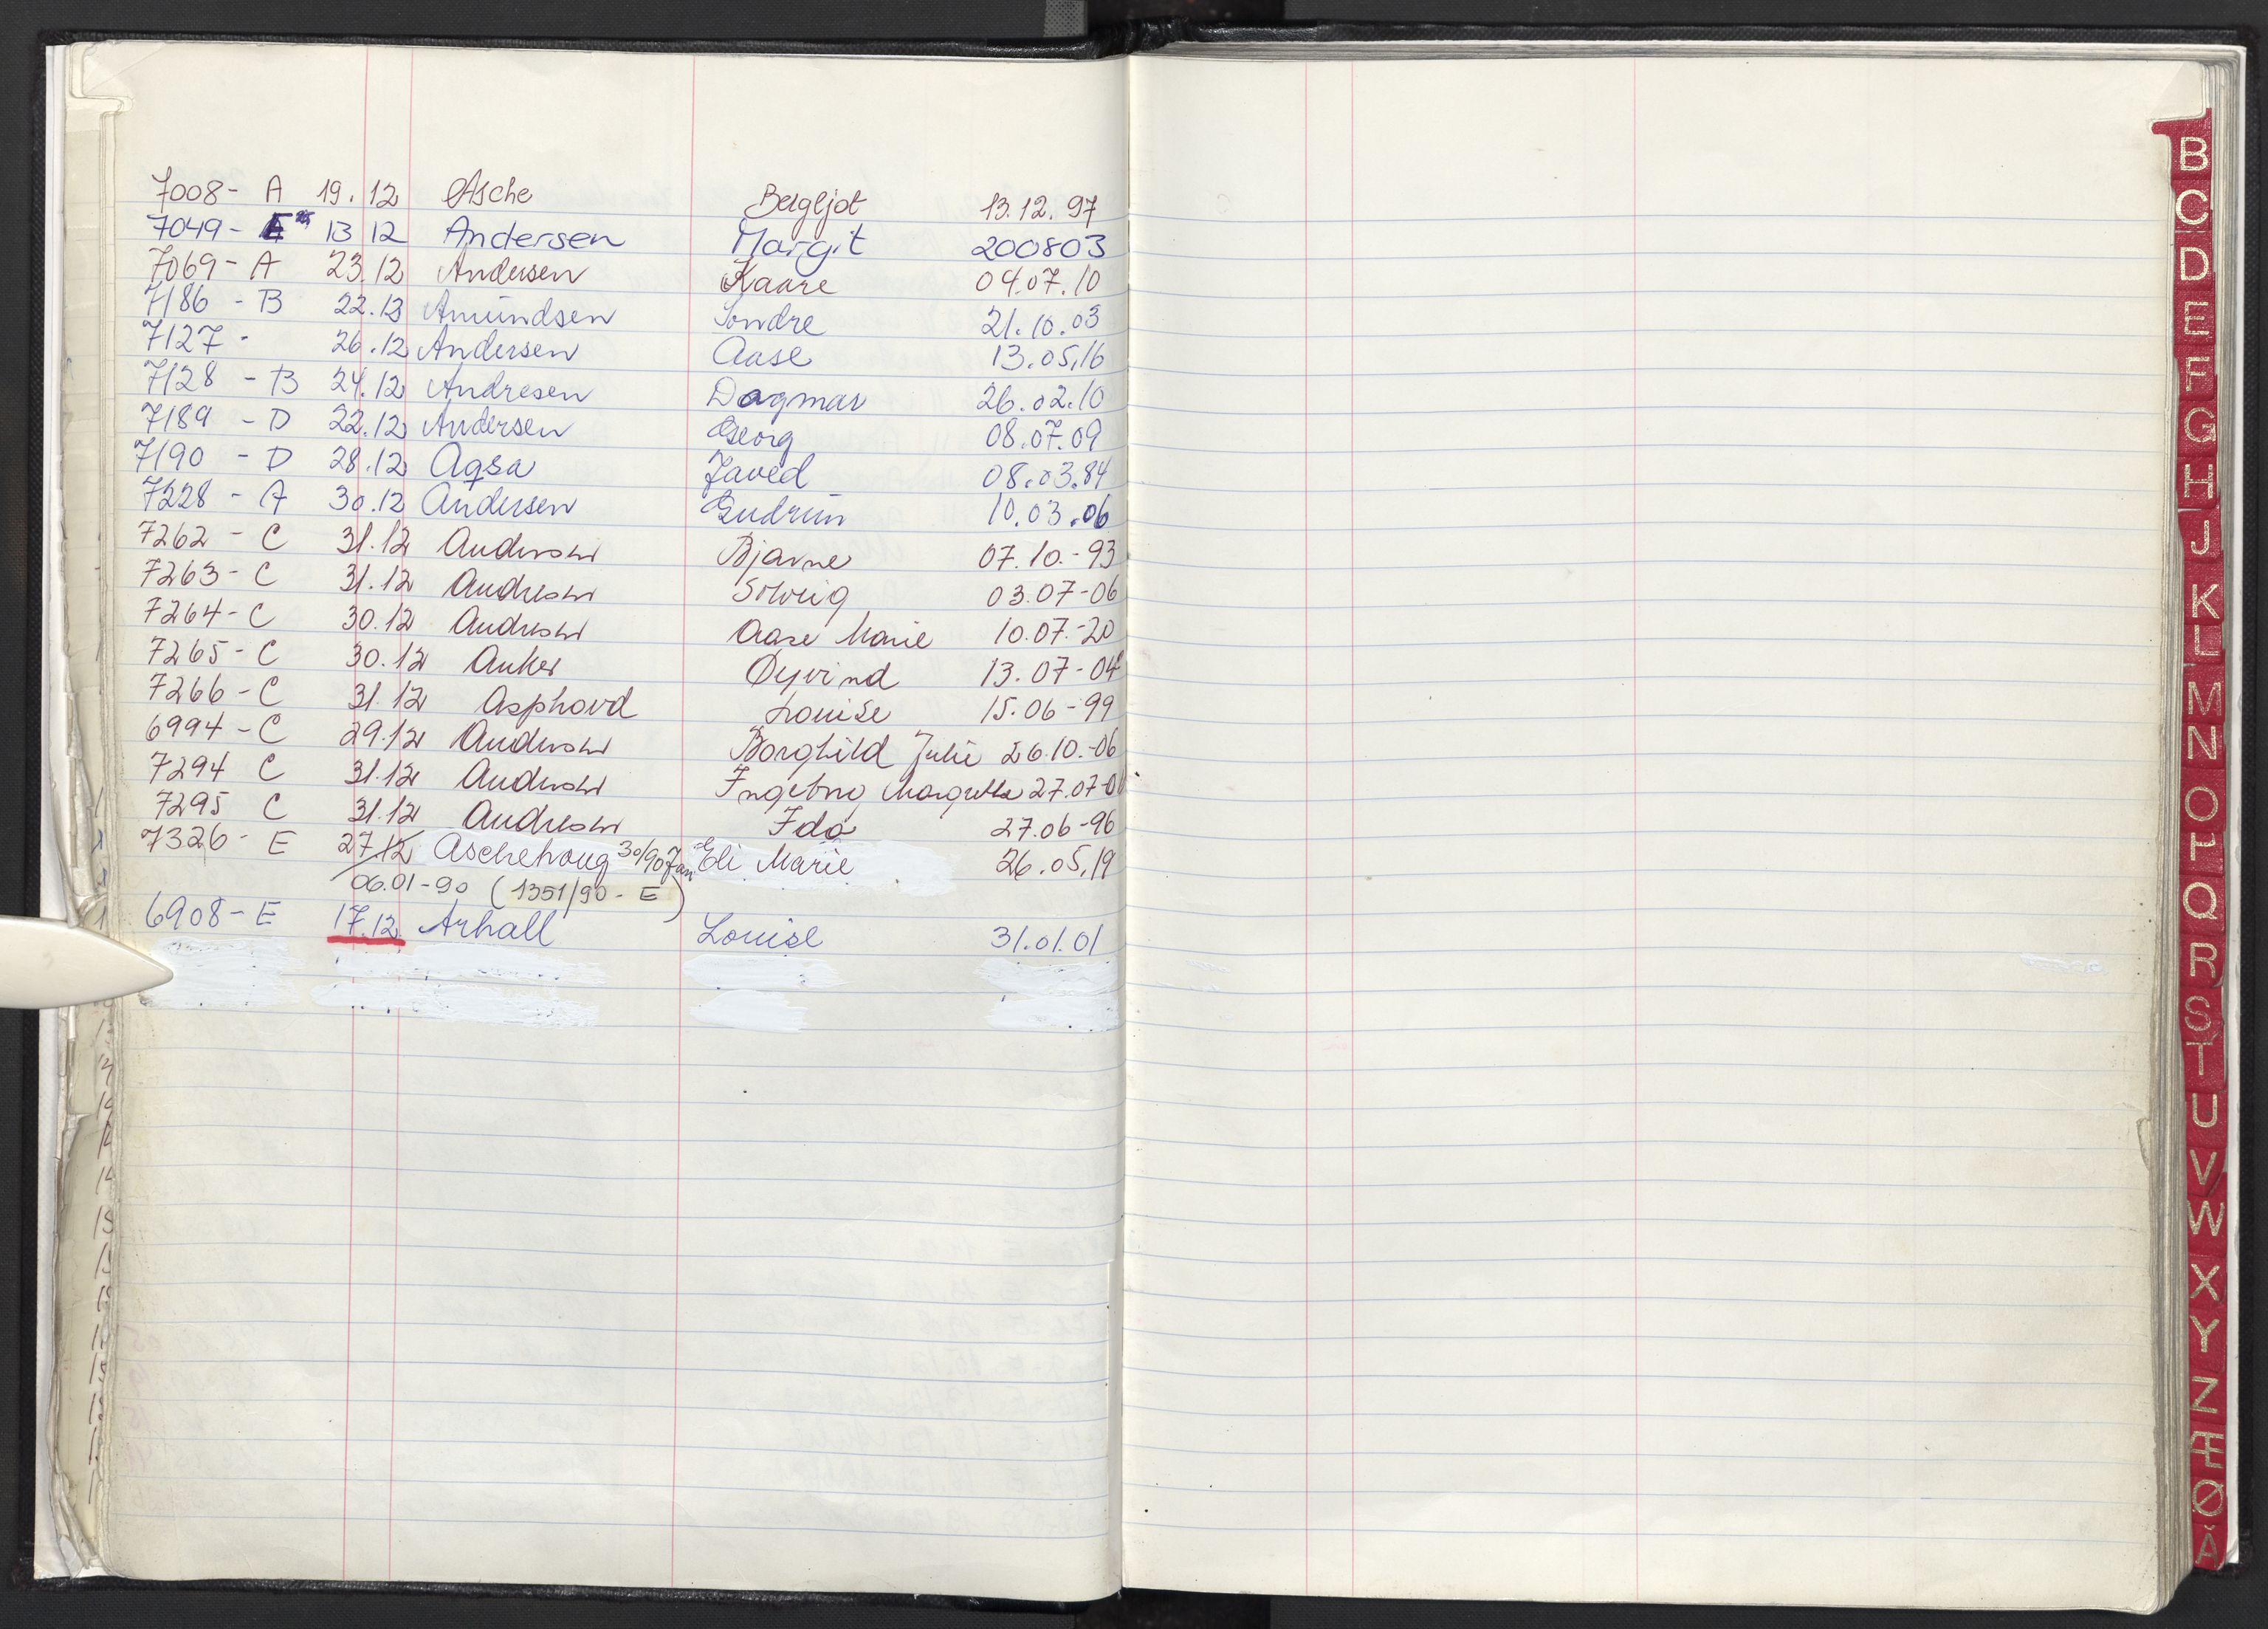 7008- A 19.12 Asche Bergljot 13.12.97
7049- E 13 12 Andersen Margit 200803
7069- A 23.12 Andersen Kaare 04.07.10
7186 - B 22.12 Amundsen Sondre 21.10.03
7127 - 26.12 Andersen Aase 13.05.16
7128 - B 24.12 Andresen Dagmar 26.02.10
7189 - D 22.12 Andersen Georg 08.07.09
7190 - D 28.12 Aqsa Javed 08.03.84
7228 - A 30.12 Andersen Gudrun 10.03.06
7262 - C 31.12 Andersen Bjarne 07.10.-93
7263- C 31.12 Andresen Solveig 03.07-06
7264- C 30.12 Andresen Aase Marie 10.07.-20
7265- C 30.12 Anker Øyvind 13.07-04
7266- C 31.12 Asphovd Louise 15.06-99
6994- C 29.12 Andersen Borghild Julie 26.10.-06
7294 C 31.12 Andersen Ingeborg Margrethe 27.07-0
7295 C 31.12 Andresen Ida 27.06-96
7326- E 27.12 Aschehoug 30/90 Jan Eli Marie 26.05.19
06.01-90 (1351/90- E)
6908- E 17.12 Arhall Louise 31.01.01
B
C
D
E
F
G
H
J
K
L
M
N
O
P
Q
R
S
T
U
V
W
X
Y
Z
Æ
Ø
Å